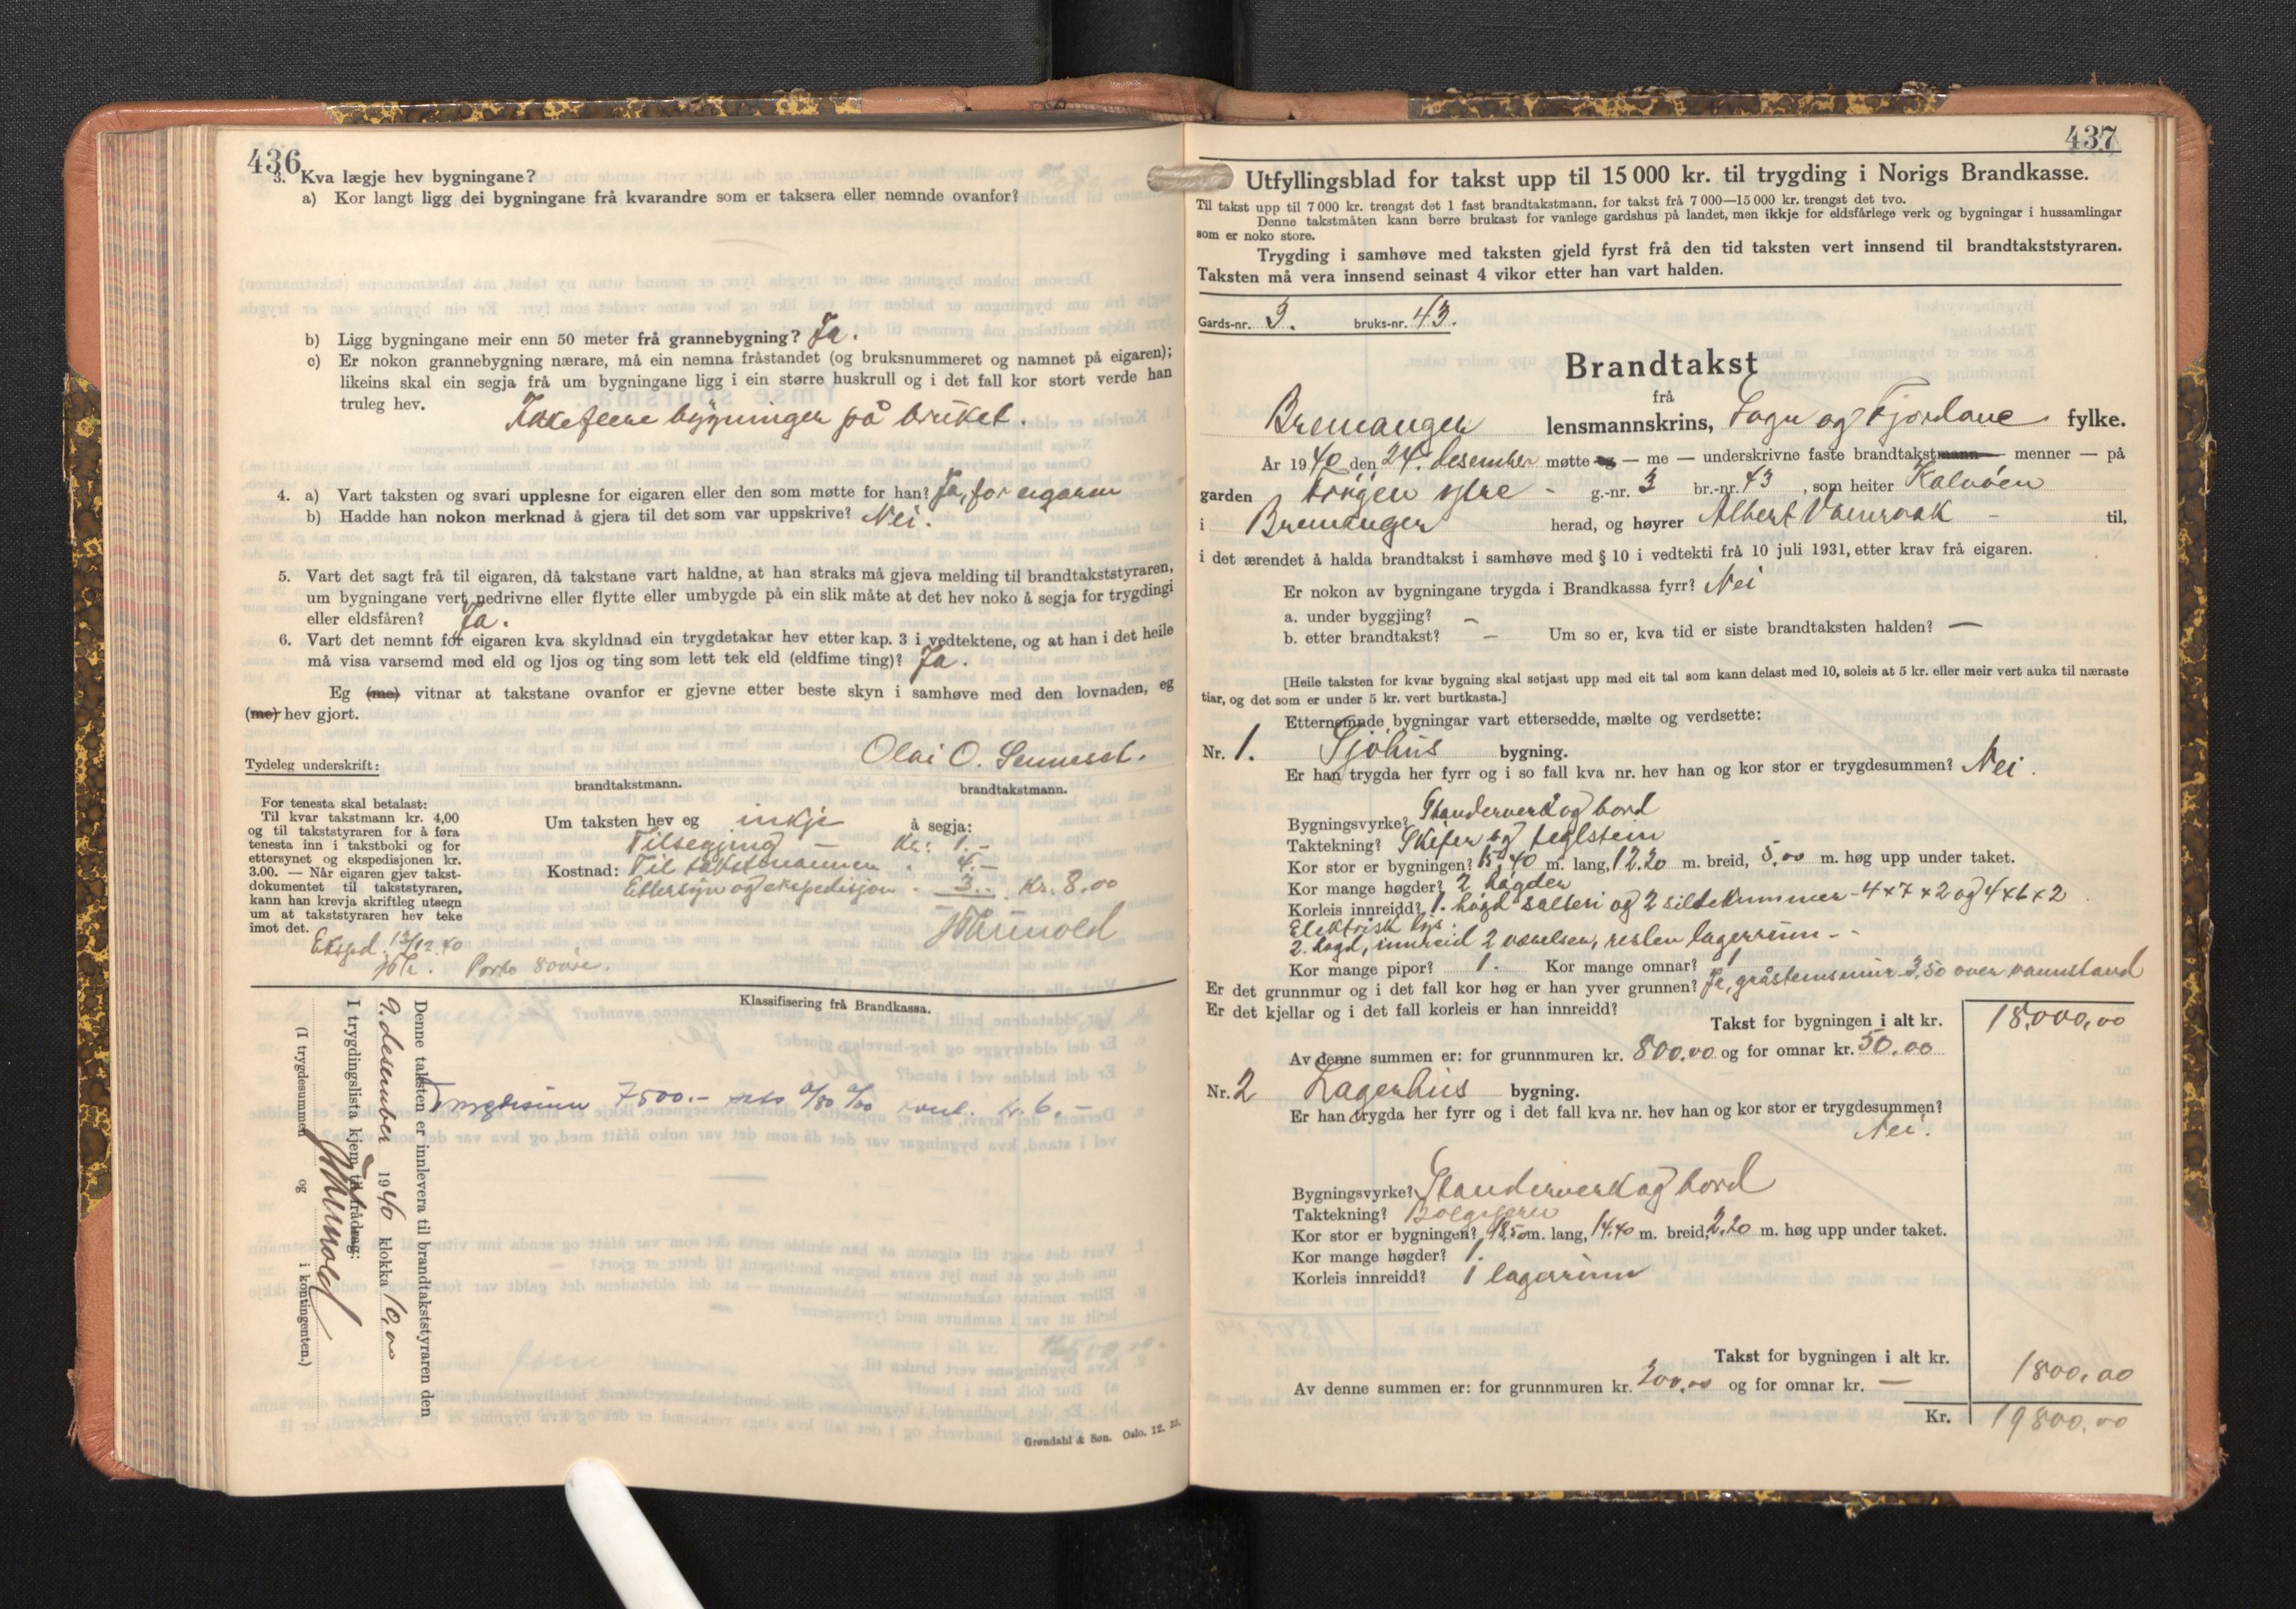 436
3. Kva lægje hev bygningane?
a) Kor langt ligg dei bygningane frå kvarandre som er taksera eller nemnde ovanfor?
b) Ligg bygningane meir enn 50 meter frå grannebygning? Ja.
c) Er nokon grannebygning nærare, må ein nemna fråstandet (og bruksnummeret og namnet på eigaren);
likeins skal ein segja frå um bygningane ligg i ein større huskrull og i det fall kor stort verde han
truleg hev.
Ikke flere bygninger på bruket.
4. a) Vart taksten og svari upplesne for eigaren eller den som møtte for han? Ja, for eigaren
b) Hadde han nokon merknad å gjera til det som var uppskrive? Nei.
5. Vart det sagt frå til eigaren, då takstane vart haldne, at han straks må gjeva melding til brandtakststyraren,
um bygningane vert nedrivne eller flytte eller umbygde på ein slik måte at det hev noko å segja for trygdingi
eller eldsfåren? Ja.
6. Vart det nemnt for eigaren kva skyldnad ein trygdetakar hev etter kap. 3 i vedtektene, og at han i det heile
må visa varsemd med eld og ljos og ting som lett tek eld (eldfime ting)? Ja.
Eg (me) vitnar at takstane ovanfor er gjevne etter beste skyn i samhøve med den lovnaden, eg
(me) hev gjort.
Tydeleg underskrift:
Olai O.
brandtakstmann.
brandtakstmann.
For tenesta skal betalast:
Til kvar takstmann kr. 4,00
og til takststyraren for å føra
tenesta inn i takstboki og for
ettersynet og ekspedisjonen kr.
3.00. — Når eigaren gjev takst-
dokumentet til takststyraren,
kann han krevja skriftleg utsegn
um at takststyraren hev teke
imot det.
Um taksten hev eg inkje å segja:
Tilsegjing — Kr: 1.-
Kostnad: Til takstmannen . 4.-
Ettersyn og ekspedisjon . 3.- Kr. 8.00
Eksped. 13/12.40
Porto 80 øre.
Klassifisering frå Brandkassa.
Trygdesum 7500.- kont. kr. 6.-
Denne taksten er innlevera til brandtakststyraren den
9. desember 1940 klokka 10,00
I trygdingslista kjem til frådrag:
(I trygdesummen og i kontingenten.)
Grøndahl & Søn. Oslo. 12.
437
Utfyllingsblad for takst upp til 15 000 kr. til trygding i Norigs Brandkasse.
Til takst upp til 7 000 kr. trengst det 1 fast brandtakstmann, for takst frå 7 000—15 000 kr. trengst det tvo.
Denne takstmåten kann berre brukast for vanlege gardshus på landet, men ikkje for eldsfårlege verk og bygningar i hussamlingar
som er noko store.
Trygding i samhøve med taksten gjeld fyrst frå den tid taksten vert innsend til brandtakststyraren.
Taksten må vera innsend seinast 4 vikor etter han vart halden.
Gards-nr. 3. bruks-nr. 43.
Brandtakst
frå
Bremanger lensmannskrins, Sogn og Fjordane fylke.
År 1940 den 24. desember møtte eg — me — underskrivne faste brandtakstmann — menner — på
garden ytre - g.-nr. 3 br.-nr. 43, som heiter Kalvöen
i Bremanger herad, og høyrer Albert til,
i det ærendet å halda brandtakst i samhøve med § 10 i vedtekti frå 10 juli 1931, etter krav frå eigaren.
Er nokon av bygningane trygda i Brandkassa fyrr? Nei
a. under byggjing? —
b. etter brandtakst? — Um so er, kva tid er siste brandtaksten halden? —
[Heile taksten for kvar bygning skal setjast upp med eit tal som kann delast med 10, soleis at 5 kr. eller meir vert auka til næraste
tiar, og det som er under 5 kr. vert burtkasta.]
Etternemnde bygningar vart ettersedde, mælte og verdsette:
Nr. 1. Sjöhus bygning.
Er han trygda her fyrr og i so fall kva nr. hev han og kor stor er trygdesummen? Nei.
Bygningsvyrke? Standerverk og bord
Taktekning? Skifer og teglstein
Kor stor er bygningen? 15,40 m. lang, 12.20 m. breid, 5.00 m. høg upp under taket.
Kor mange høgder? 2 høgder
Korleis innreidd? 1. høgd salteri og 2 sildekummer - 4x7x2 og 4x6x2
Elektrisk lys.
2. høgd, innreid 2 værelser, resten lagerrum -
Kor mange pipor? 1. Kor mange omnar? 1
Er det grunnmur og i det fall kor høg er han yver grunnen? Ja, gråsteinsmur 3,50 over vannstand
Er det kjellar og i det fall korleis er han innreidd?
Takst for bygningen i alt kr. 18.000,00
Av denne summen er: for grunnmuren kr. 800.00 og for omnar kr. 50.00
Nr. 2 Lagerhus bygning.
Er han trygda her fyrr og i det fall kva nr. hev han og kor stor er trygdesummen?
Nei.
Bygningsvyrke? Standerverk og bord
Taktekning?
Kor stor er bygningen? 18.50 m. lang, 14.40 m. breid, 2.20 m. høg upp under taket.
Kor mange høgder? 1.
Korleis innreidd? 1 lagerrum
Takst for bygningen i alt kr. 1800.00
Av denne summen er: for grunnmuren kr. 200,00 og for omnar kr. —
Kr. 19800.00